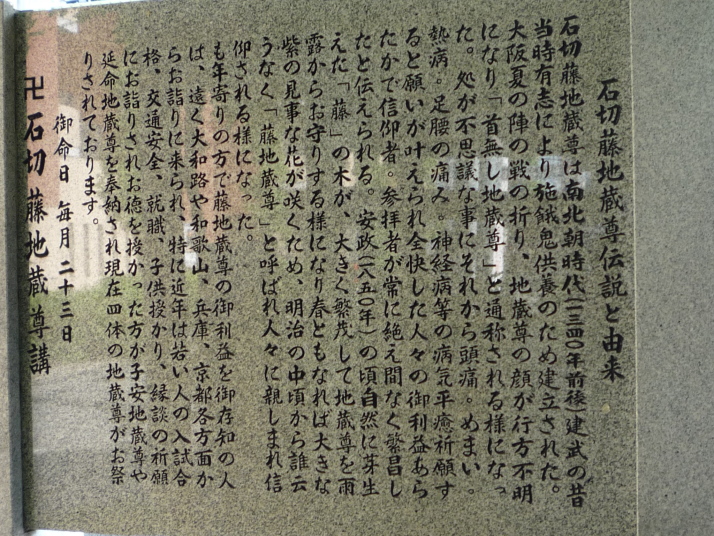 石切藤地蔵尊伝説と由来
石切藤地蔵尊は南北朝時代(一三四〇年前後)建武の昔
当時有志により施餓鬼供養のため建立された。
大阪夏の陣の戦の折り、地蔵尊の顔が行方不明
になり「首無し地蔵尊」と通称される様になっ
た。処が不思議な事にそれから頭痛。めまい。
熱病。足腰の痛み。神経病等の病気平癒祈願す
ると願いが叶えられ全快した人々の御利益あら
たかで信仰者。参拝者が常に絶え間なく繁昌し
たと伝えられる。安政(一八五〇年)の頃自然に芽生
えた「藤」の木が、大きく繁茂して地蔵尊を雨
露からお守りする様になり春ともなれば大きな
紫の見事な花が咲くため、明治の中頃から誰云
うなく「藤地蔵尊」と呼ばれ人々に親しまれ信
仰される様になった。
も年寄りの方で藤地蔵尊の御利益を御存知の人
は、遠く大和路や和歌山、兵庫、京都各方面か
らお詣りに来られ、特に近年は若い人の入試合
格、交通安全、就職、子供授かり、縁談の祈願
にお詣りされお徳を授かった方が子安地蔵尊や
延命地蔵尊を奉納され現在四体の地蔵尊がお祭
りされております。
御命日 毎月 二十三日
卍 石切 藤地蔵尊講